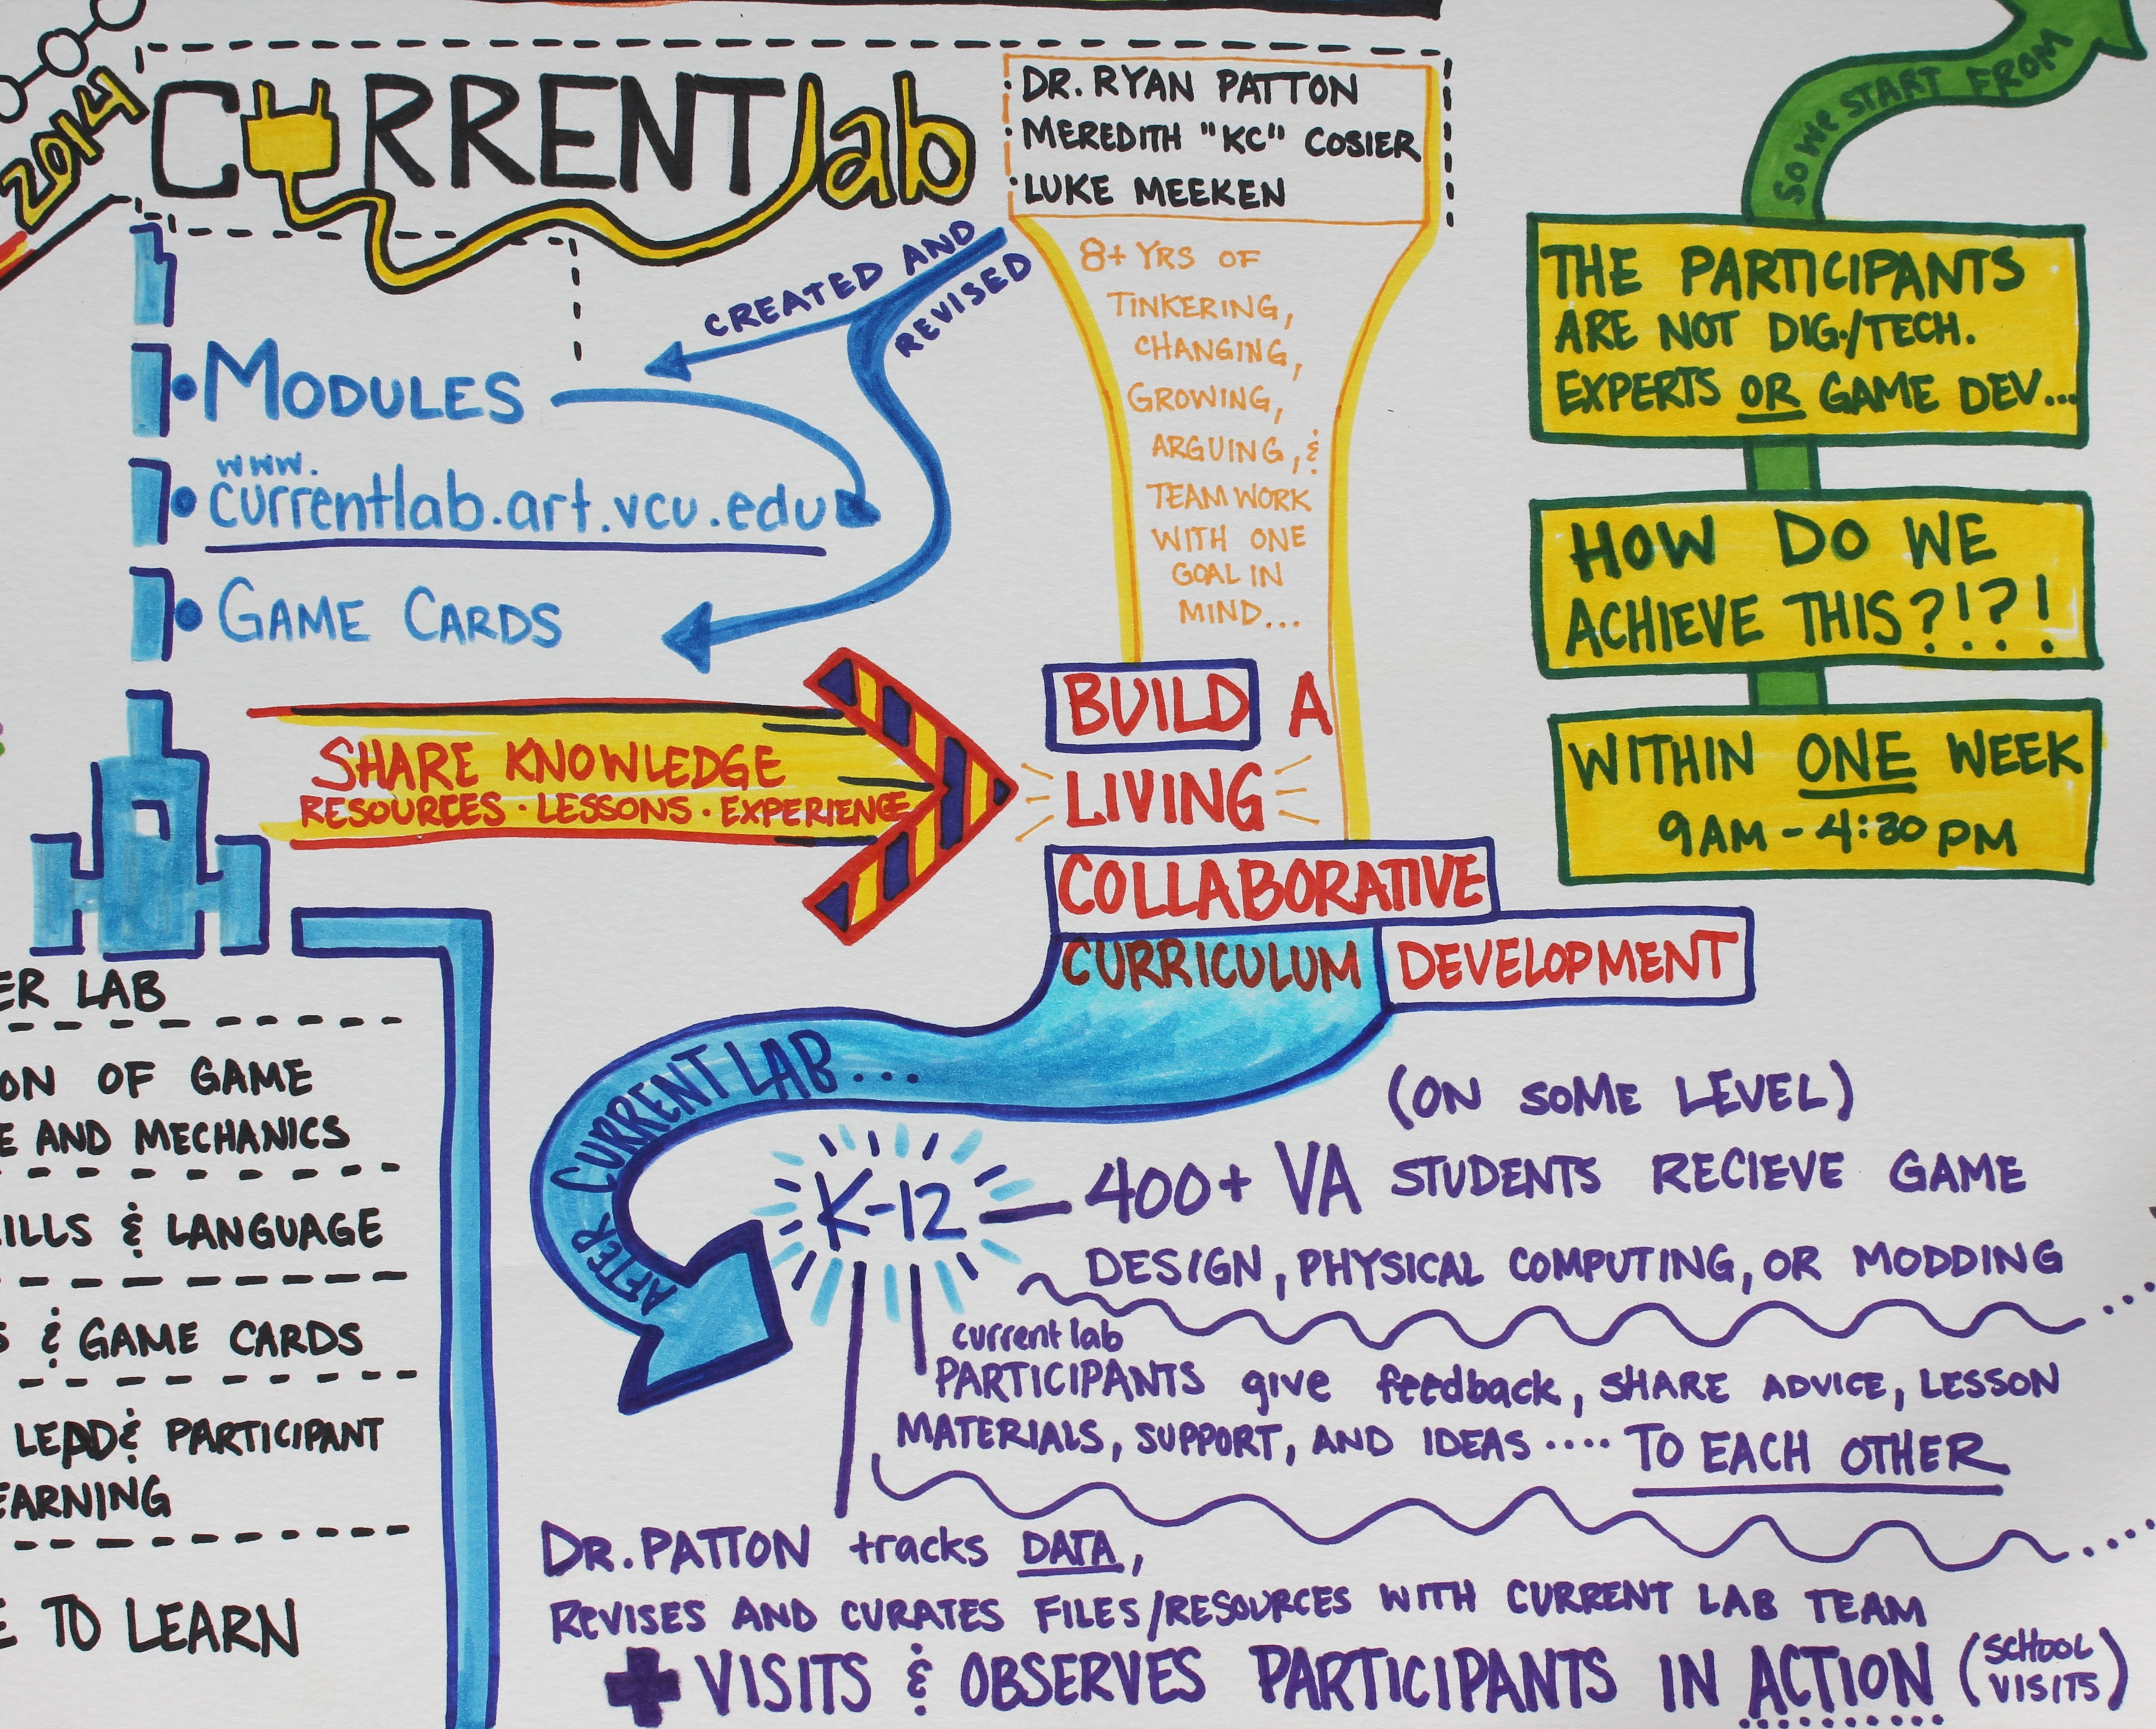 2014
CURRENTlab
· DR. RYAN PATTON
· MEREDITH "KC" COSIER
· LUKE MEEKEN
CREATED AND
REVISED
• MODULES
www.
• currentlab.art.vcu.edu
• GAME CARDS
8+ YRS OF
TINKERING,
CHANGING,
GROWING,
ARGUING, &
TEAMWORK
WITH ONE
GOAL IN
MIND...
SHARE KNOWLEDGE
RESOURCES · LESSONS · EXPERIENCE
BUILD A
LIVING
COLLABORATIVE
CURRICULUM DEVELOPMENT
SO WE START FROM
THE PARTICIPANTS
ARE NOT DIG./TECH.
EXPERTS OR GAME DEV...
HOW DO WE
ACHIEVE THIS?!?!
WITHIN ONE WEEK
9AM - 4:30 PM
ER LAB
ON OF GAME
E AND MECHANICS
ILLS & LANGUAGE
S & GAME CARDS
LEAD & PARTICIPANT
EARNING
E TO LEARN
AFTER CURRENT LAB...
K-12
(ON SOME LEVEL)
400+ VA STUDENTS RECIEVE GAME
DESIGN, PHYSICAL COMPUTING, OR MODDING
current lab
PARTICIPANTS give feedback, SHARE ADVICE, LESSON
MATERIALS, SUPPORT, AND IDEAS .... TO EACH OTHER
DR. PATTON tracks DATA,
REVISES AND CURATES FILES/RESOURCES WITH CURRENT LAB TEAM
+ VISITS & OBSERVES PARTICIPANTS IN ACTION (SCHOOL VISITS)